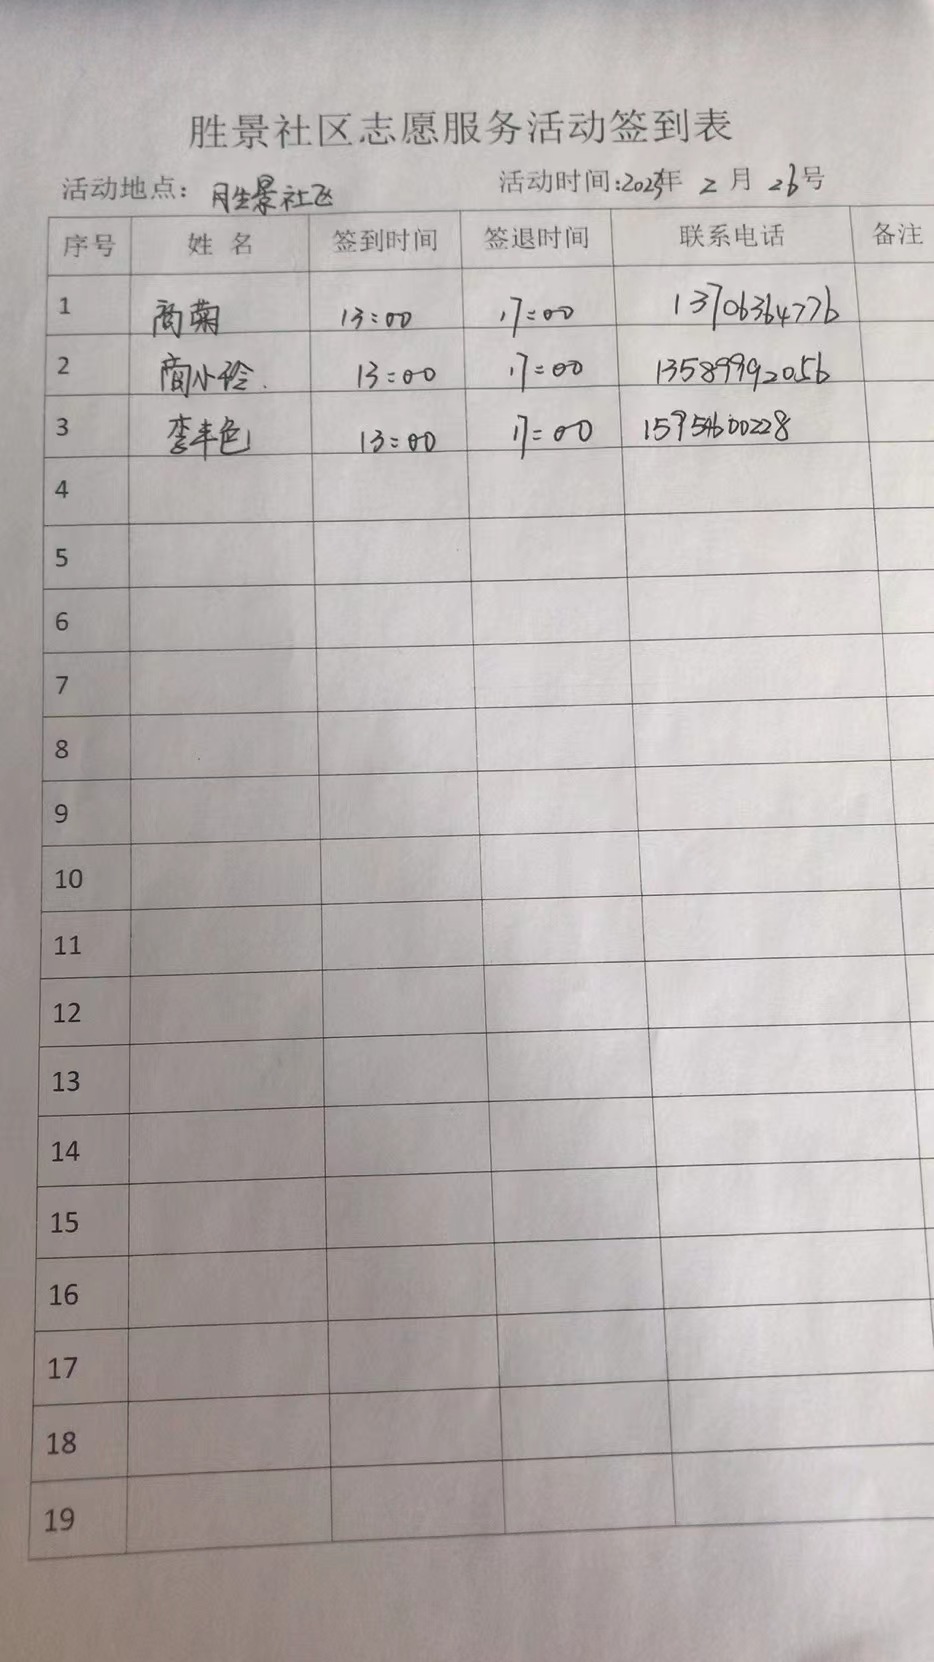 胜景社区志愿服务活动签到表
活动地点：胜景社区 活动时间:2023年 2 月 26号
序号 姓 名 签到时间 签退时间 联系电话 备注
1 商菊 13:00 17:00 13706364776
2 商小玲 13:00 17:00 13589992056
3 13:00 17:00
4
5
6
7
8
9
10
11
12
13
14
15
16
17
18
19